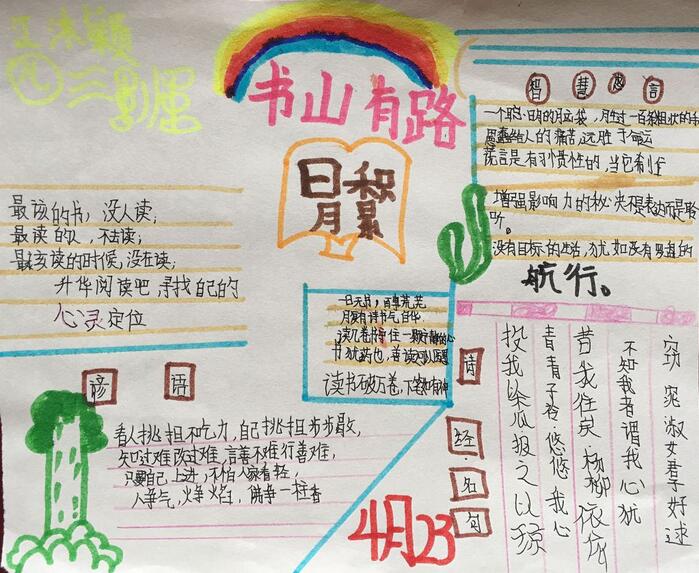 王沐颖
四三影班
书山有路
日积
月累
智慧书言
一个聪明的月立袋，月生过一百条粗壮的
愚蠢给人的痛苦远胜于命运
谎言是有习惯性的，当它
增强影响力的秘夬不是表达而是聆
听。
没有目标的生活，犹如没有
航行。
最该的书，没人读；
最读的人，不去读；
最该读的时候，没在读；
升华阅读吧 寻找自己的
心灵定位
一日无书，百事荒芜
腹有诗书气自华
书犹药也，善读可以医愚
读书破万卷，下笔如有神
谚语
看人挑担不吃力，自己挑担步步歇，
知过难改过难，言善不难行善难，
只要自己上进，不怕人家看轻，
人争气，火争焰，佛争一柱香
4月23
诗经名句
窈窕淑女君子好逑
不知我者谓我心犹
昔我往矣杨柳依依
青青子衿·悠悠我心
投我以木瓜报之以琼